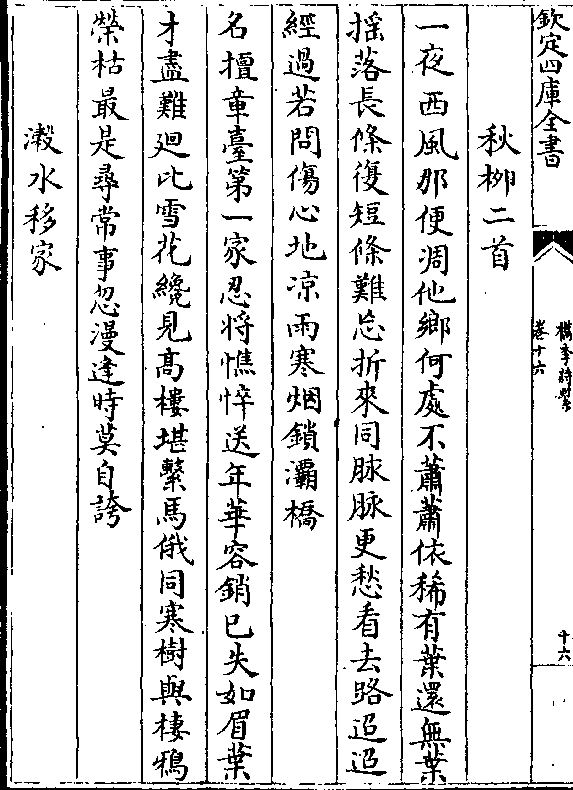 欽定四庫全書
檇李詩繫
卷十六
十六
秋栁二首
一夜西風那便凋他鄉何處不蕭蕭依稀有葉還無葉
揺落長條復短條難忘折來同脉脉更愁看去路迢迢
經過若問傷心地凉雨寒烟鎖灞橋
名擅章臺第一家忍将憔悴送年華容銷已失如眉葉
才盡難廻比雪花纔見高樓堪繫馬俄同寒樹與棲鴉
榮枯最是尋常事忽漫逢時莫自誇
濲水移家